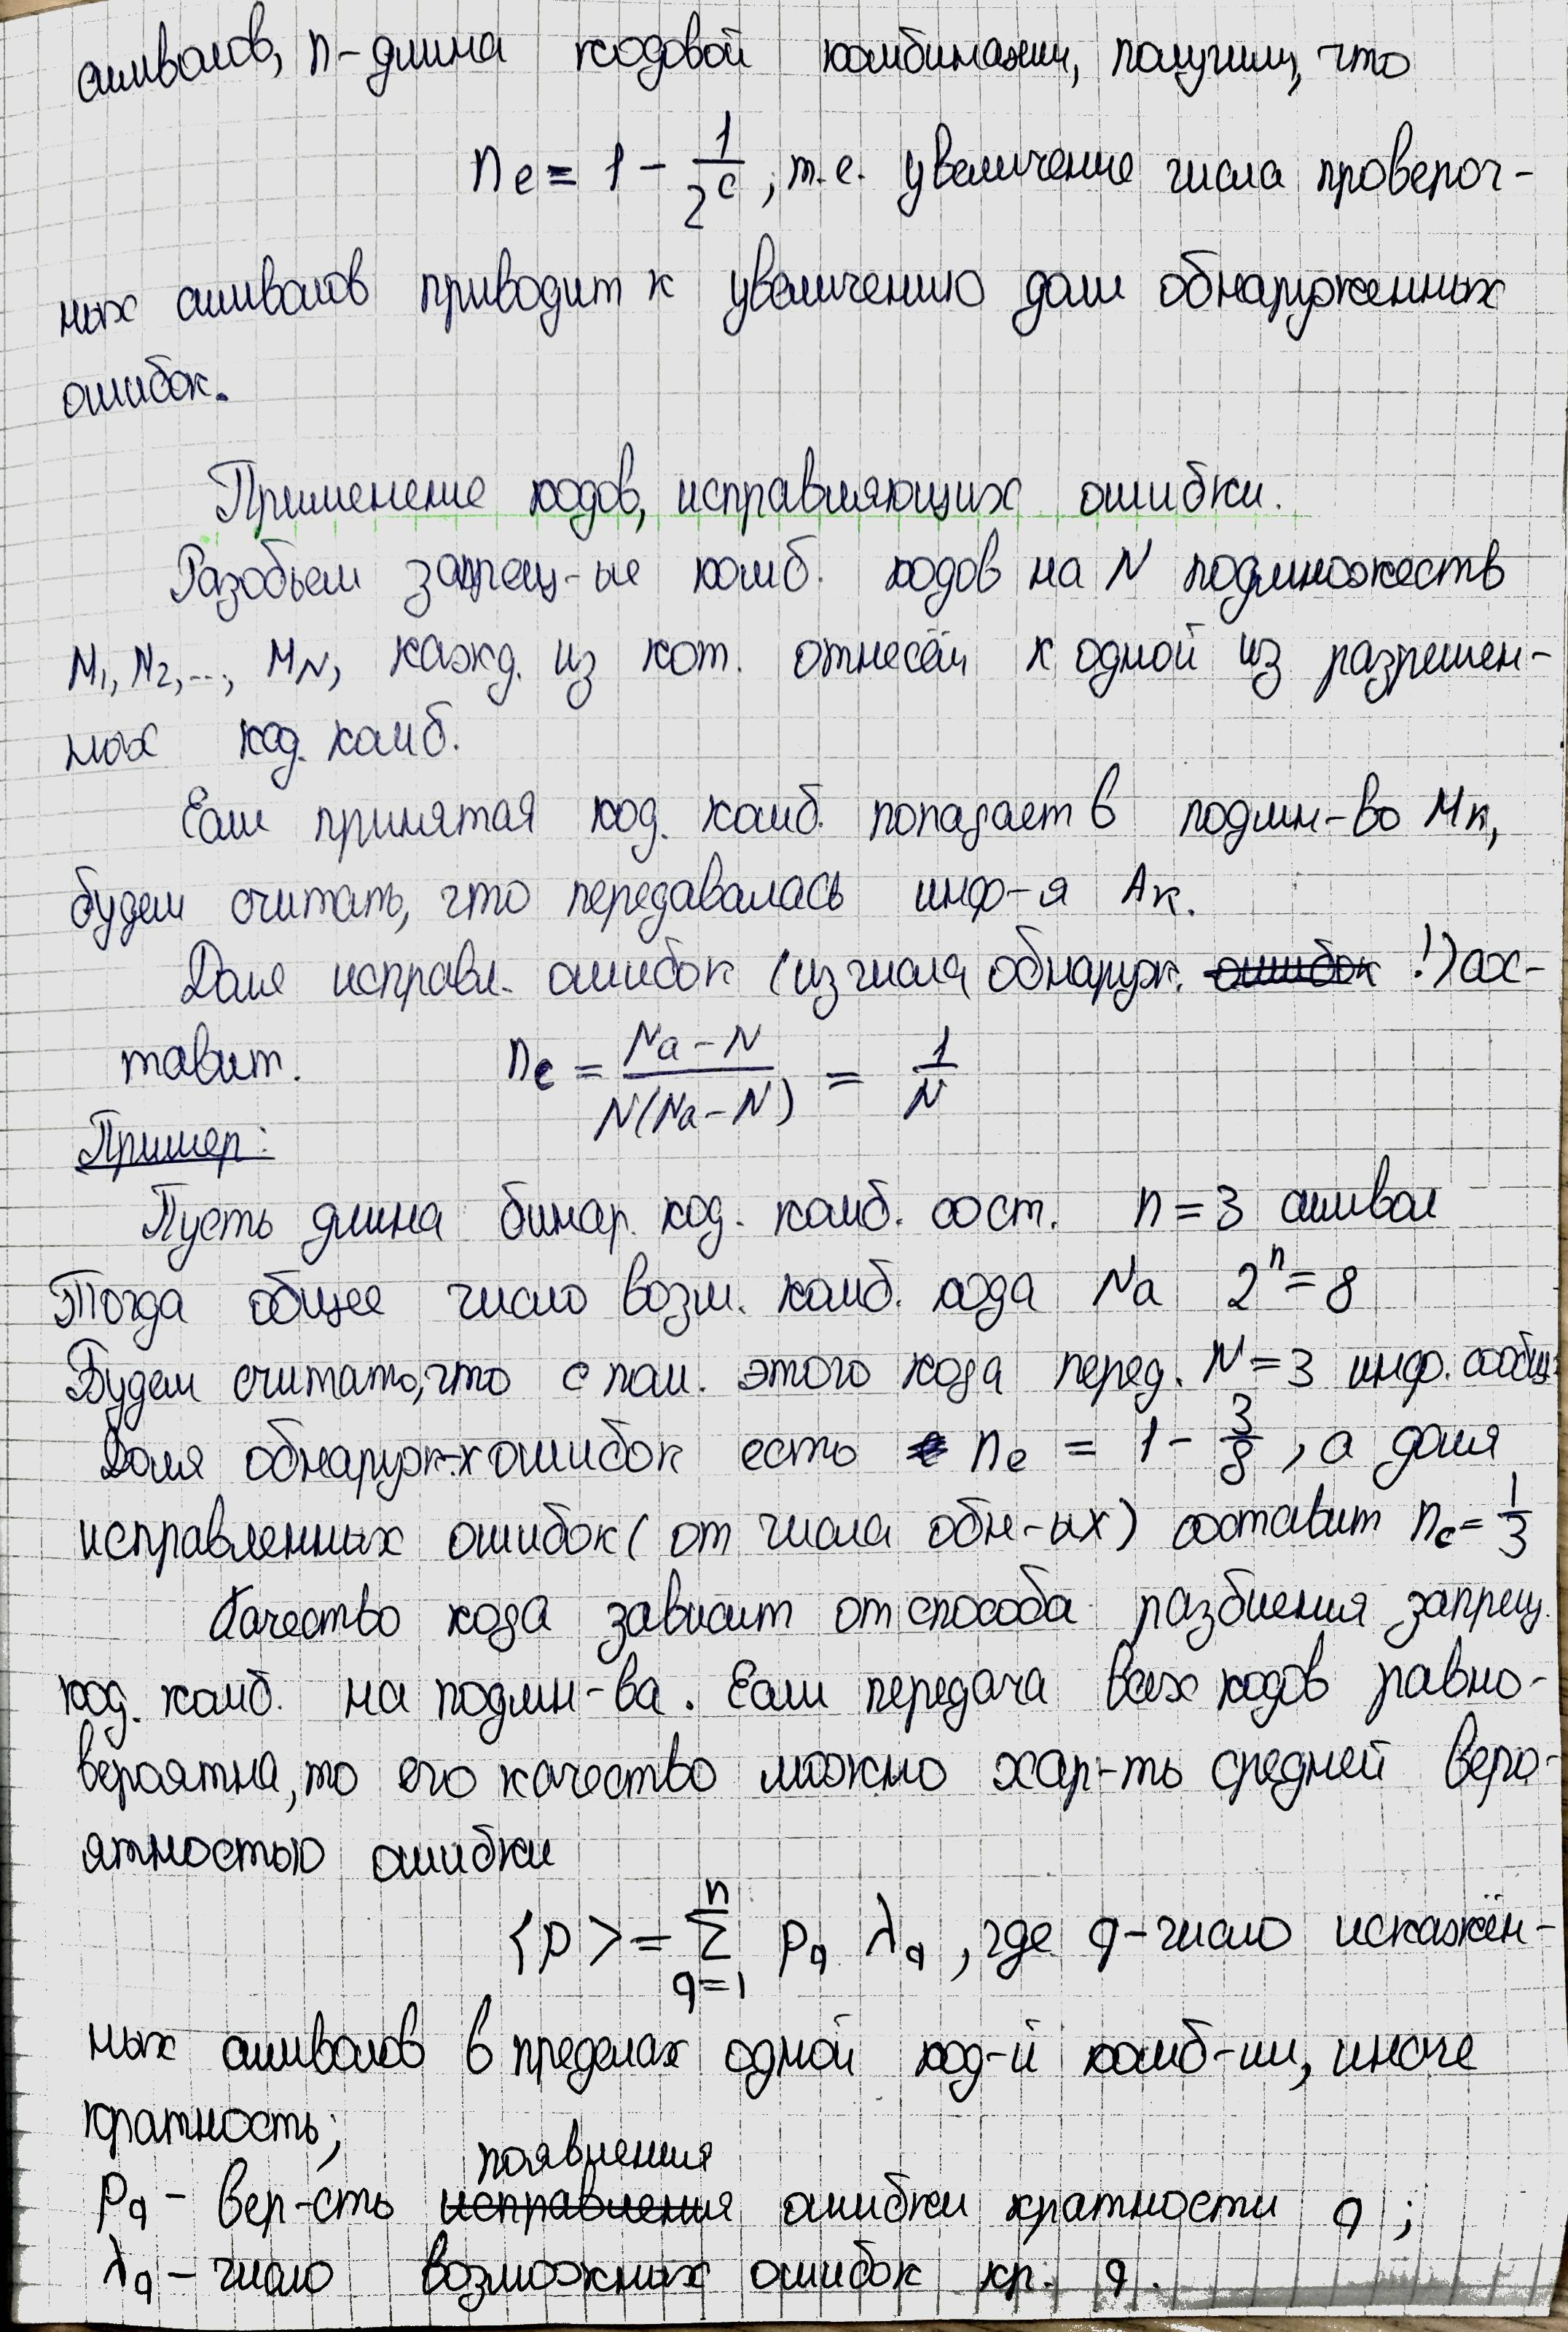 символов, n - длина кодовой комбинации, получим, что
n_e = 1 - 1/2^c, т.е. увеличение числа провероч-
ных символов приводит к увеличению доли обнаруженных
ошибок.
Применение кодов, исправляющих ошибки.
Разобьем запрещ-ые комб. кодов на N подмножеств
M1, M2, ..., MN, кажд. из кот. отнесём к одной из разрешен-
ных код. комб.
Если принятая код. комб. попадает в подмн-во Mк,
будем считать, что передавалась инф-я Aк.
Доля исправл. ошибок (из числа обнаруж. ошибок !) сос-
тавит. n_c = (Na - N)/(N(Na - N)) = 1/N
Пример:
Пусть длина бинар. код. комб. сост. n = 3 символ
Тогда общее число возм. комб. кода Na 2^n = 8
Будем считать, что с пом. этого кода перед. N = 3 инф. сообщ.
Доля обнаруж-х ошибок есть n_e = 1 - 3/8, а доля
исправленных ошибок (от числа обн-ых) составит n_c = 1/3
Качество кода зависит от способа разбиения запрещ.
код. комб. на подмн-ва. Если передача всех кодов равно-
вероятна, то его качество можно хар-ть средней веро-
ятностью ошибки
<p> = Σ_{q=1}^{n} p_q λ_q, где q - число искажён-
ных символов в пределах одной код-й комб-ии, иначе
кратность;
появления
p_q - вер-сть исправления ошибки кратности q;
λ_q - число возможных ошибок кр. q.